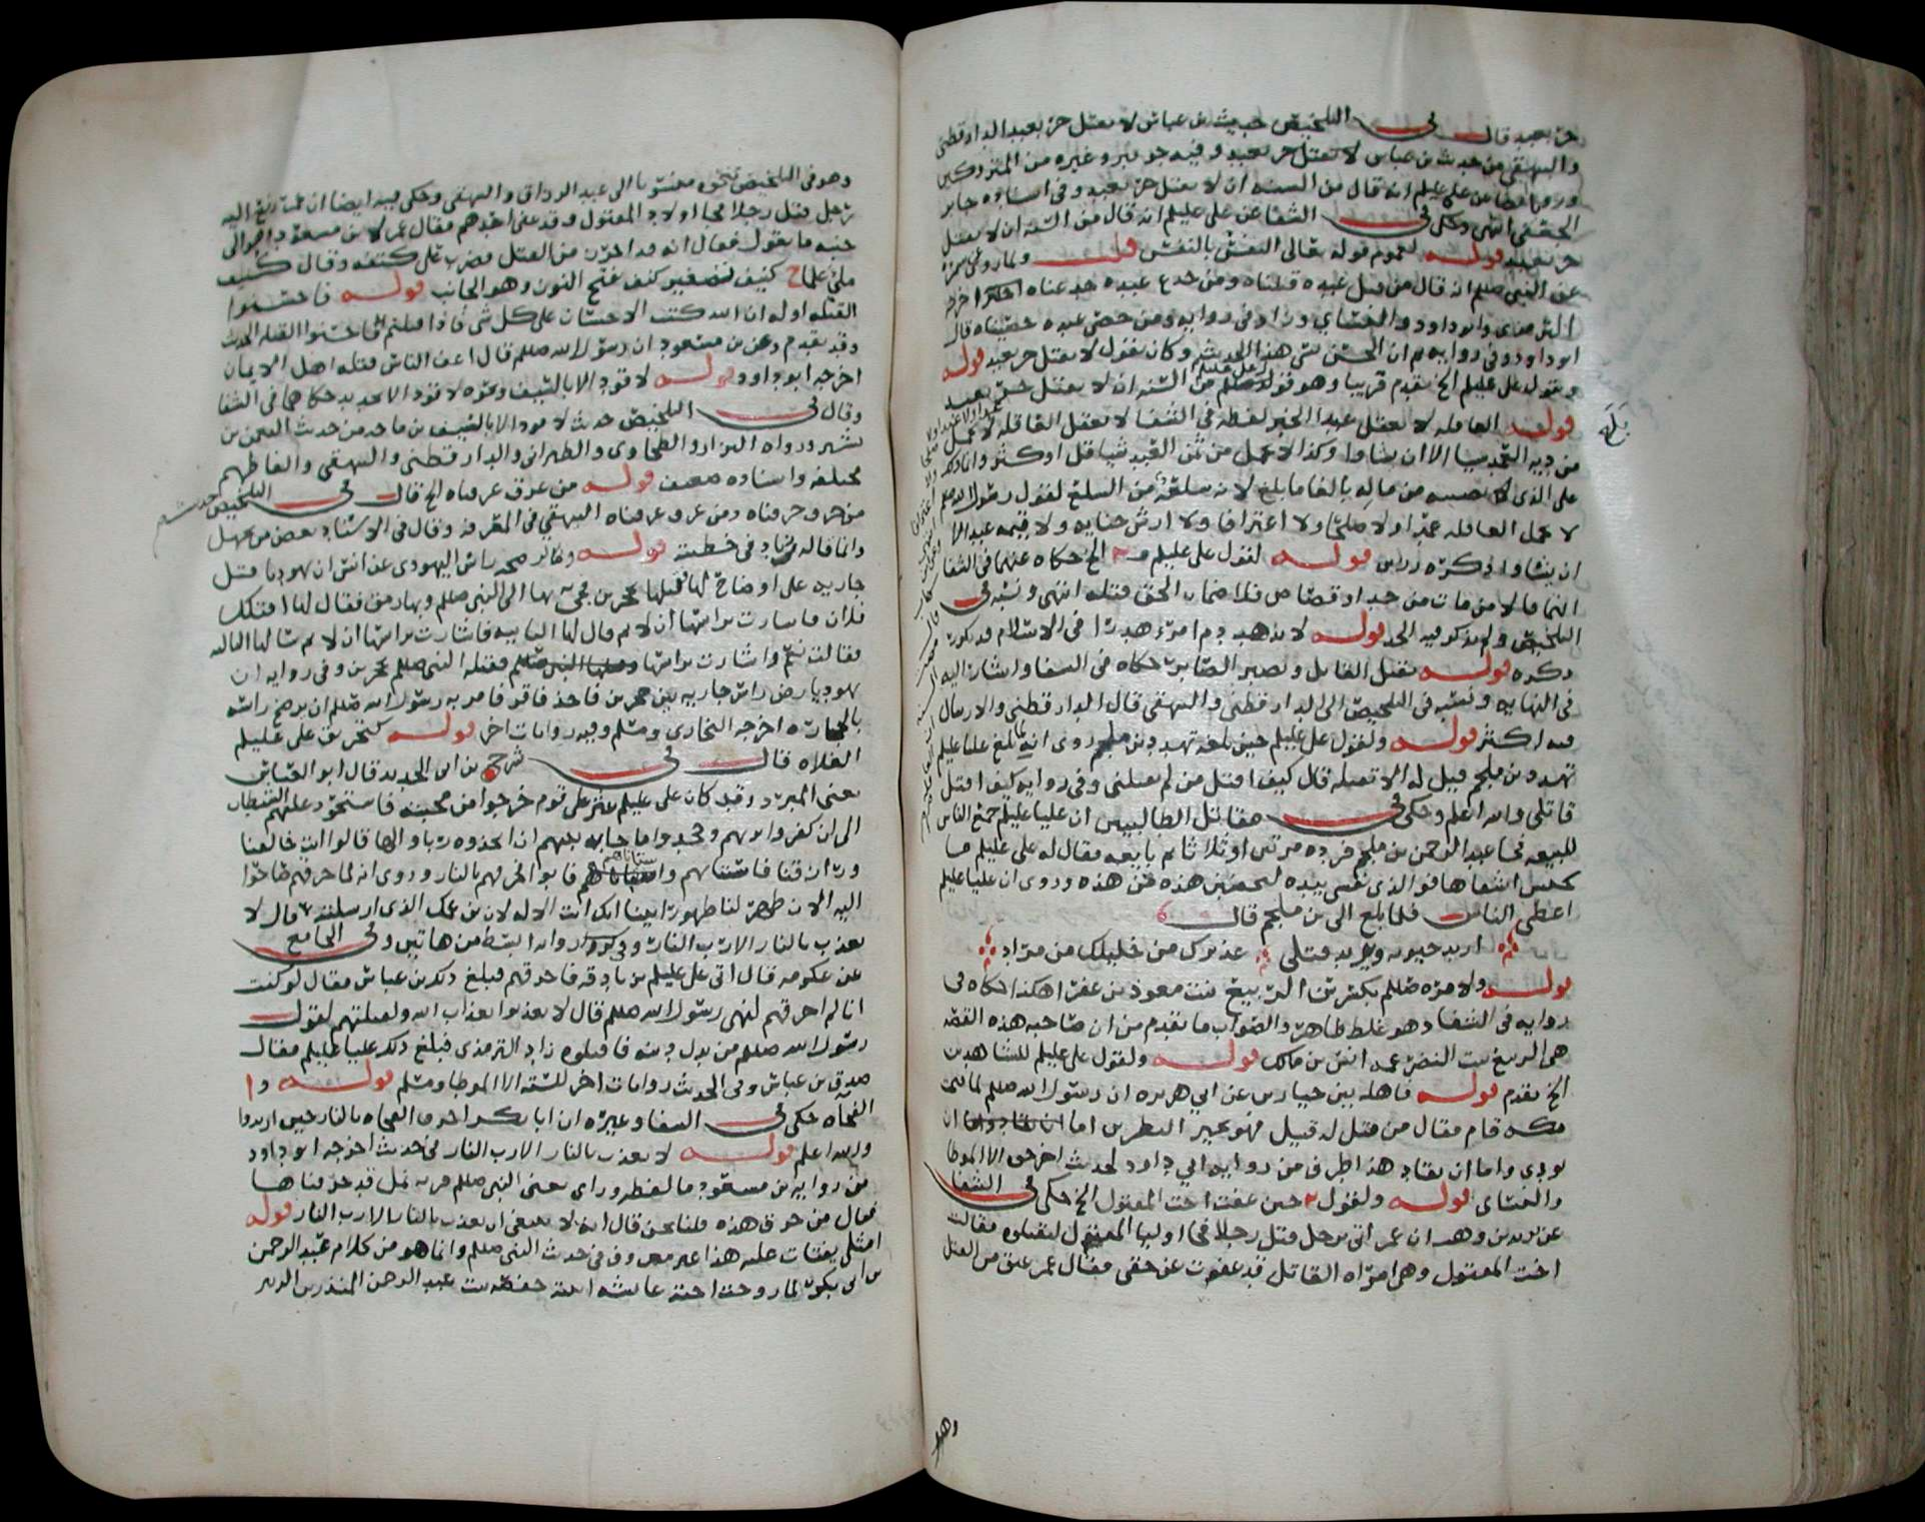 حر بعبد قال في التلخيص حديث بن عباس لا يقتل حر بعبد الدارقطني
والبيهقي من حديث بن عباس لا يقتل حر بعبد وفيه جويبر وغيره من المتروكين
ورويا ايضا عن علي عليلم انه قال من السنه ان لا يقتل حر بعبد وفي اسناده جابر
الجعفي انتهى وحكى في الشفا عن علي عليلم انه قال من السنه ان لا يقتل
حر بعبد قوله لعموم قوله تعالى النفس بالنفس قلت ولما روى سمرة
عن النبي صللم انه قال من قتل عبده قتلناه ومن جدع عبده جدعناه هكذا اخرجه
الترمذي وابو داود والنسائي وزاد في روايه ومن خصى عبده خصيناه قال
ابو داود وفي روايه ثم ان الحسن نسي هذا الحديث وكان يقول لا يقتل حر بعبد قوله
وبقول علي عليلم الخ تقدم قريبا وهو قوله من السنه ان لا يقتل حر بعبد
قوله العاقله لا تعقل عبدا الخبر لفظه في الشفا لا تعقل العاقله لا تحمل
من ديه العمد شيا الا ان يشاوا وكذا لا تحمل من ثمن العبد شيا قل او كثر وانما ذلك
على الذي يصيبه من ماله بالغا ما بلغ لانه سلعة من السلع لقول رسول الله صللم
لا تحمل العاقله عمدا ولا صلحا ولا اعترافا ولا ارش جنايه ولا قيمه عبد الا
ان يشاوا ذكره رزين قوله لقول علي عليلم الخ حكاه عنهما في الشفا
انما قالا من مات من حد او قصاص فلا ضمان الحق قتله انتهى ونسبه في
التلخيص ولم يذكر فيه الحد قوله لا يذهب دم امرء هدرا في الاسلام قد تكرر
ذكره قوله يقتل القاتل ويصبر الصابر حكاه في الشفا واشار اليه
في النهايه ونسبه في التلخيص الى الدارقطني والبيهقي قال الدارقطني والارسال
فيه اكثر قوله ولقول علي عليلم حين بلغه تهدد بن ملجم روى انه لما بلغ عليا عليلم
تهدد بن ملجم قيل له الا تقتله قال كيف اقتل من لم يقتلني وفي روايه كيف اقتل
قاتلي والله اعلم وحكى في مقاتل الطالبيين ان عليا عليلم جمع الناس
للبيعه فجا عبد الرحمن بن ملجم فرده مرتين او ثلاثا ثم بايعه فقال له علي عليلم ما
يحبس اشقاها فو الذي نفسي بيده لتخضبن هذه من هذه وروى ان عليا عليلم
اعطى الناس فلما بلغ الى بن ملجم قال
اريد حيوته ويريد قتلي عذيرك من خليلك من مراد
قوله ولامره صللم بكسر سن الربيع بنت معوذ بن عفرا هكذا حكاه في
روايه في الشفا وهو غلط ظاهر والصواب ما تقدم من ان صاحبه هذه القصه
هي الربيع بنت النضر عمه انس بن مالك قوله ولقول علي عليلم للشاهدين
الخ تقدم قوله فاهله بين خيارين عن ابي هريره ان رسول الله صللم لما فتح
مكه قام فقال من قتل له قتيل فهو بخير النظرين اما ان
يودى واما ان يقاد هذا طرف من روايه ابي داود لحديث اخرجوه الا الموطا
والنسائي قوله ولقول عمر حين عفت اخت المقتول الخ حكى في الشفا
عن زيد بن وهب ان عمر اتي برجل قتل رجلا فجا اوليا المقتول ليقتلوه فقالت
اخت المقتول وهي امراه القاتل قد عفوت عن حقي فقال عمر عتق من القتل
وهو
بلغ
وهو في التلخيص بنحوه منسوبا الى عبد الرزاق والبيهقي وحكى فيه ايضا ان عمر رفع اليه
رجل قتل رجلا فجا اولاد المقتول وقد عفى احدهم فقال عمر لابن مسعود وهو الى
جنبه ما تقول فقال انه قد احرز من القتل فضرب على كتفه وقال كنيف
ملئ علما ح كنيف تصغير كنف بفتح النون وهو الجانب قوله فاحسنوا
القتله اوله ان الله كتب الاحسان على كل شي فاذا قتلتم فاحسنوا القتله الحديث
وقد تقدم وعن بن مسعود ان رسول الله صللم قال اعف الناس قتله اهل الايمان
اخرجه ابو داود قوله لا قود الا بالسيف ونحوه لا قود الا بحديد حكاهما في الشفا
وقال في التلخيص حديث لا قود الا بالسيف بن ماجه من حديث النعمن بن
بشير ورواه البزار والطحاوي والطبراني والدارقطني والبيهقي والفاظهم
مختلفه واسناده ضعيف قوله من غرق غرقناه الخ قال في التلخيص حديث
من حرق حرقناه ومن غرق غرقناه البيهقي في المعرفه وقال في الاسناد بعض من يجهل
وانما قاله زياد في خطبته قوله وفي خبر راس اليهودي عن انس ان يهوديا قتل
جاريه على اوضاح لها فقتلها بحجر فجي بها الى النبي صللم وبها رمق فقال لها اقتلك
فلان فاشارت براسها ان لا ثم قال لها الثانيه فاشارت براسها ان لا ثم سالها الثالثه
فقالت نعم واشارت براسها فقتله النبي صللم بحجرين وفي روايه ان
يهوديا رض راس جاريه بين حجرين فاخذ فاقر فامر به رسول الله صللم ان يرض راسه
بالحجاره اخرجه البخاري ومسلم وفيه روايات اخر قوله كتحريق علي عليلم
الغلاه قال في شرح بن ابي الحديد قال ابو العباس
يعني المبرد وقد كان علي عليلم عثر على قوم خرجوا من محبته فاستحوذ عليهم الشيطان
الى ان كفروا بربهم وجحدوا ما جا به نبيهم ان اتخذوه ربا والها قالوا انت خالقنا
ورازقنا فاستتابهم فابوا فحرقهم بالنار وروى انه لما حرقهم صاحوا
اليه الان ظهر لنا ظهورا بينا انك انت الاله لان بن عمك الذي ارسلته قال لا
يعذب بالنار الا رب النار وفي الجامع
عن عكرمه قال اتي علي عليلم بزنادقه فاحرقهم فبلغ ذلك بن عباس فقال لو كنت
انا لم احرقهم لنهي رسول الله صللم قال لا تعذبوا بعذاب الله ولقتلتهم لقول
رسول الله صللم من بدل دينه فاقتلوه زاد الترمذي فبلغ ذلك عليا عليلم فقال
صدق بن عباس وفي الحديث روايات اخر للسته الا الموطا ومسلم قوله وا
الفجاه حكى في الشفا وغيره ان ابا بكر احرق الفجاه بالنار حين ارتدوا
والله اعلم قوله لا يعذب بالنار الا رب النار في حديث اخرجه ابو داود
من روايه بن مسعود ما لفظه وراى يعني النبي صللم قريه نمل قد حرقناها
فقال من حرق هذه قلنا نحن قال انه لا ينبغي ان يعذب بالنار الا رب النار قوله
امثلي يفتات عليه هذا غير معروف في حديث النبي صللم وانما هو من كلام عبد الرحمن
بن ابي بكر لما زوجت اخته عايشه ابنته حفصه بنت عبد الرحمن المنذر بن الزبير